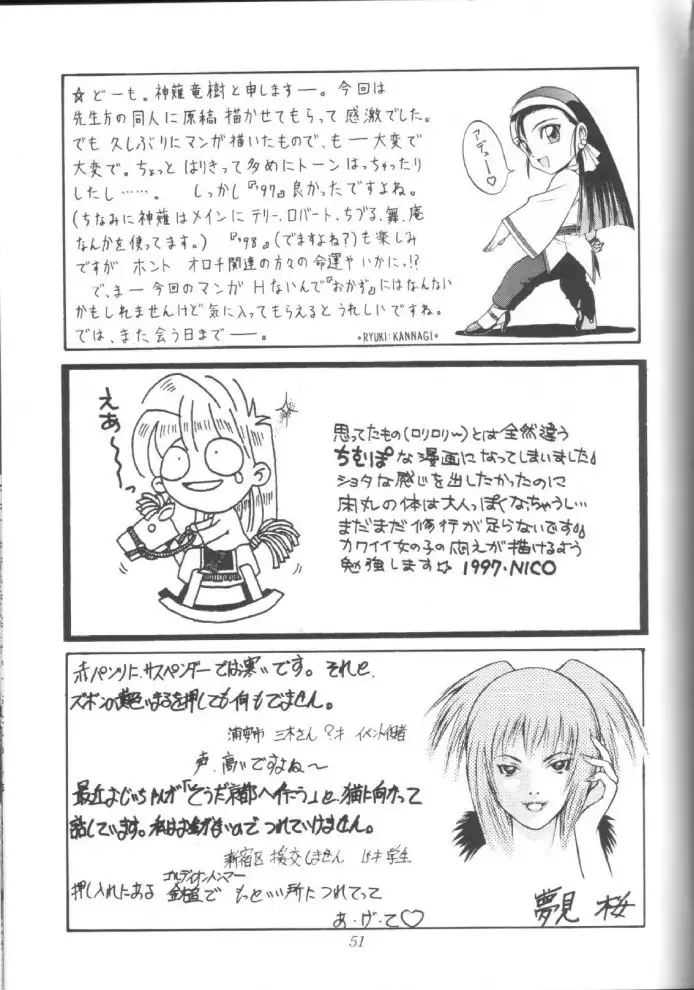 ☆どーも。神薙竜樹と申しますー。今回は
先生方の同人に原稿描かせてもらって感激でした。
でも久しぶりにマンガ描いたもので、もー大変で
大変で。ちょっとはりきって多めにトーンはっちゃたり
したし……。 しっかし『'97』良かったですよね。
(ちなみに神薙はメインにテリー、ロバート、ちづる、舞、庵
なんかを使ってます。)『'98』(でますよね?)も楽しみ
ですが ホント オロチ関連の方々の命運やいかにっ!?
で、まー今回のマンガHないんで『おかず』にはなんない
かもしれませんけど気に入ってもらえるとうれしいですね。
では、また会う日までー。
•RYUKI:KANNAGI•
アデュー♡
えあ〜〜っ
思ってたもの(ロリロリ〜)とは全然違う
ちむぽな漫画になってしまいました♪
ショタな感じを出したかったのに
体は大人っぽくなっちゃうし…
まだまだ修行が足らないです
カワイイ女の子の悶えが描けるよう
勉強します☆ 1997・NICO
赤パンツにサスペンダーでは寒いです。それと、
ズボンの まるを押しても何もでません。
三木さん ?才 イベント
声、高いですよね〜
最近よじいちゃんが「そうだ京都へ行こう」と、猫に向かって
話しています。私はお金がないのでつれていけません。
新宿区 援交しません 学生
ゴルディオンハンマー
押し入れにある 金槌で もっといい所につれてって
あ・げ・て♡
夢見 桜
51